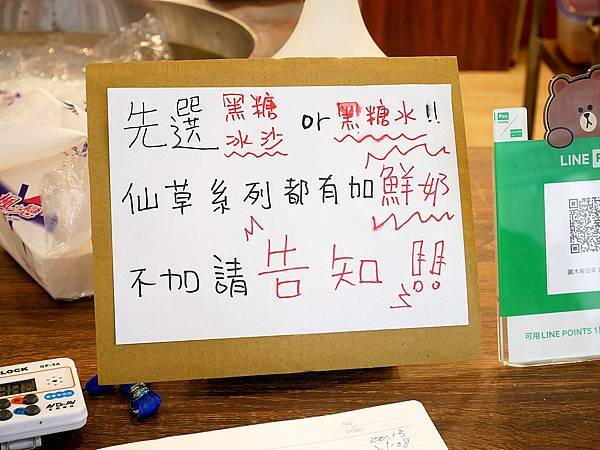 先選黑糖冰沙 or 黑糖水!!
仙草系列都有加鮮奶
不加請告知!!
LINE P
Pay
可用 LINE POINTS 1
LOCK GP-4A
No.
Date